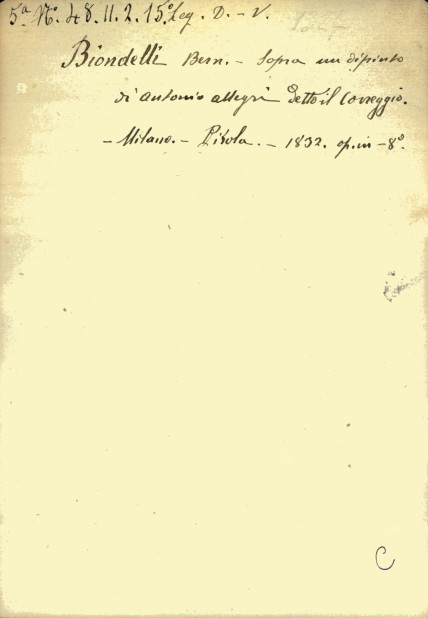 5ª Nº. 48. 11. 2. 15º Leg. D. - V.
Biondelli Bern. - Sopra un dipinto
di Antonio Allegri detto il Correggio.
- Milano. - Pirola. - 1832. op. in - 8º.
C